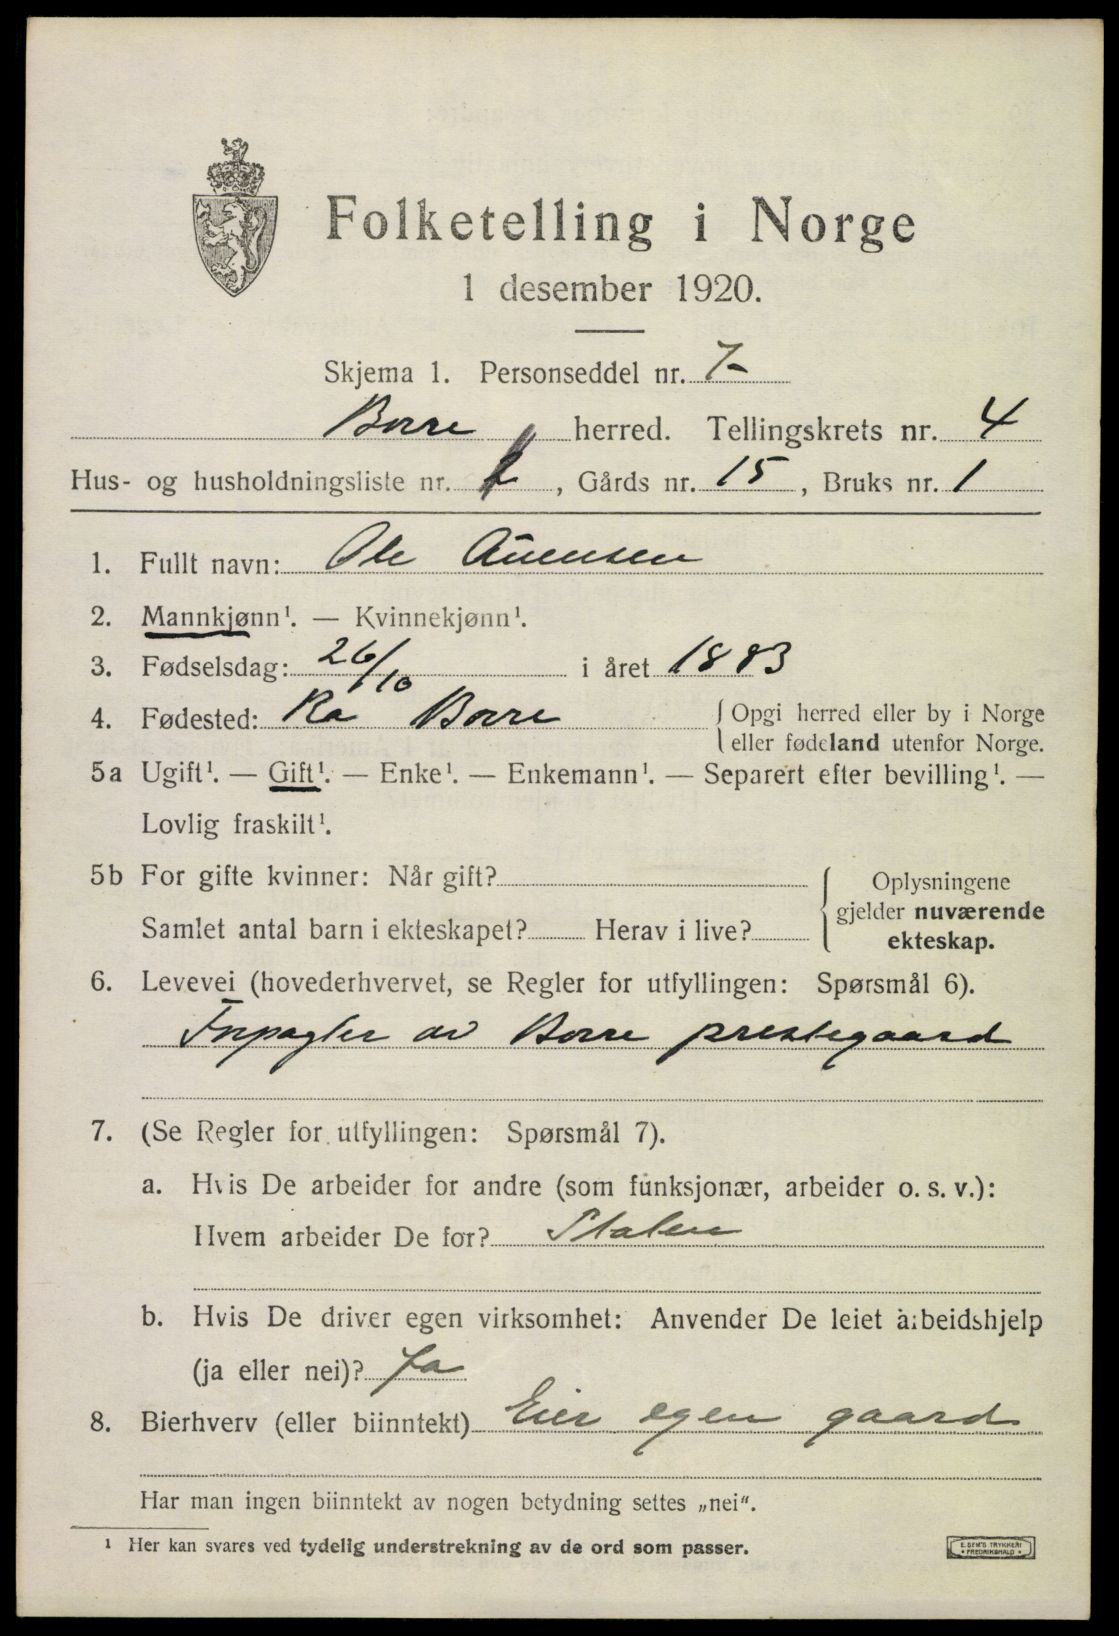 Folketelling i Norge
1 desember 1920.
Skjema 1. Personseddel nr. 7
Borre herred. Tellingskrets nr. 4
Hus- og husholdningsliste nr. , Gårds nr. 15 , Bruks nr. 1
1. Fullt navn: Ole
2. Mannkjønn¹. — Kvinnekjønn¹.
3. Fødselsdag: 26/10 i året 1883
4. Fødested: Ra Borre
{ Opgi herred eller by i Norge
eller fødeland utenfor Norge.
5a Ugift¹. — Gift¹. — Enke¹. — Enkemann¹. — Separert efter bevilling¹. —
Lovlig fraskilt¹.
5b For gifte kvinner: Når gift?
Samlet antal barn i ekteskapet? Herav i live?
{ Oplysningene
gjelder nuværende
ekteskap.
6. Levevei (hovederhvervet, se Regler for utfyllingen: Spørsmål 6).
Forpagter av Borre prestegaard
7. (Se Regler for utfyllingen: Spørsmål 7).
a. Hvis De arbeider for andre (som funksjonær, arbeider o. s. v.):
Hvem arbeider De for? Staten
b. Hvis De driver egen virksomhet: Anvender De leiet arbeidshjelp
(ja eller nei)? Ja
8. Bierhverv (eller biinntekt) Eier egen gaard
Har man ingen biinntekt av nogen betydning settes „nei".
¹ Her kan svares ved tydelig understrekning av de ord som passer.
E. SEM'S TRYKKERI
• FREDRIKSHALD •